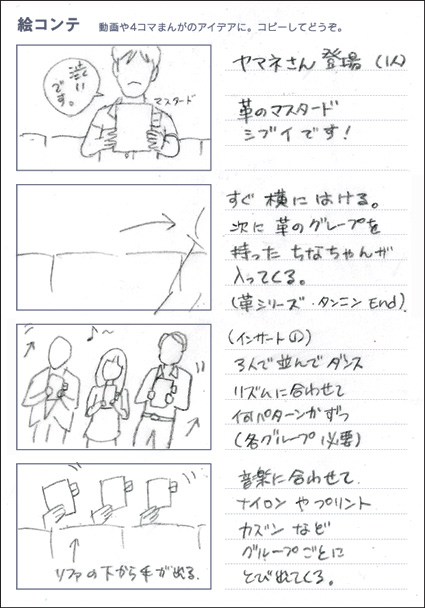 絵コンテ 動画や4コマまんがのアイデアに。コピーしてどうぞ。
渋い
です。
マスタード
ヤマネさん 登場 (1人)
革のマスタード
シブイです!
すぐ 横に はける。
次に 革のグループを
持った ちなちゃんが
入ってくる。
(革シリーズ・タンニン End)
(インサートの)
3人で並んでダンス
リズムに合わせて
何パターンかずつ
(各グループ必要)
リファの下から手が出る.
音楽に合わせて
ナイロン や プリント
カズン など
グループごとに
とび出てくる。